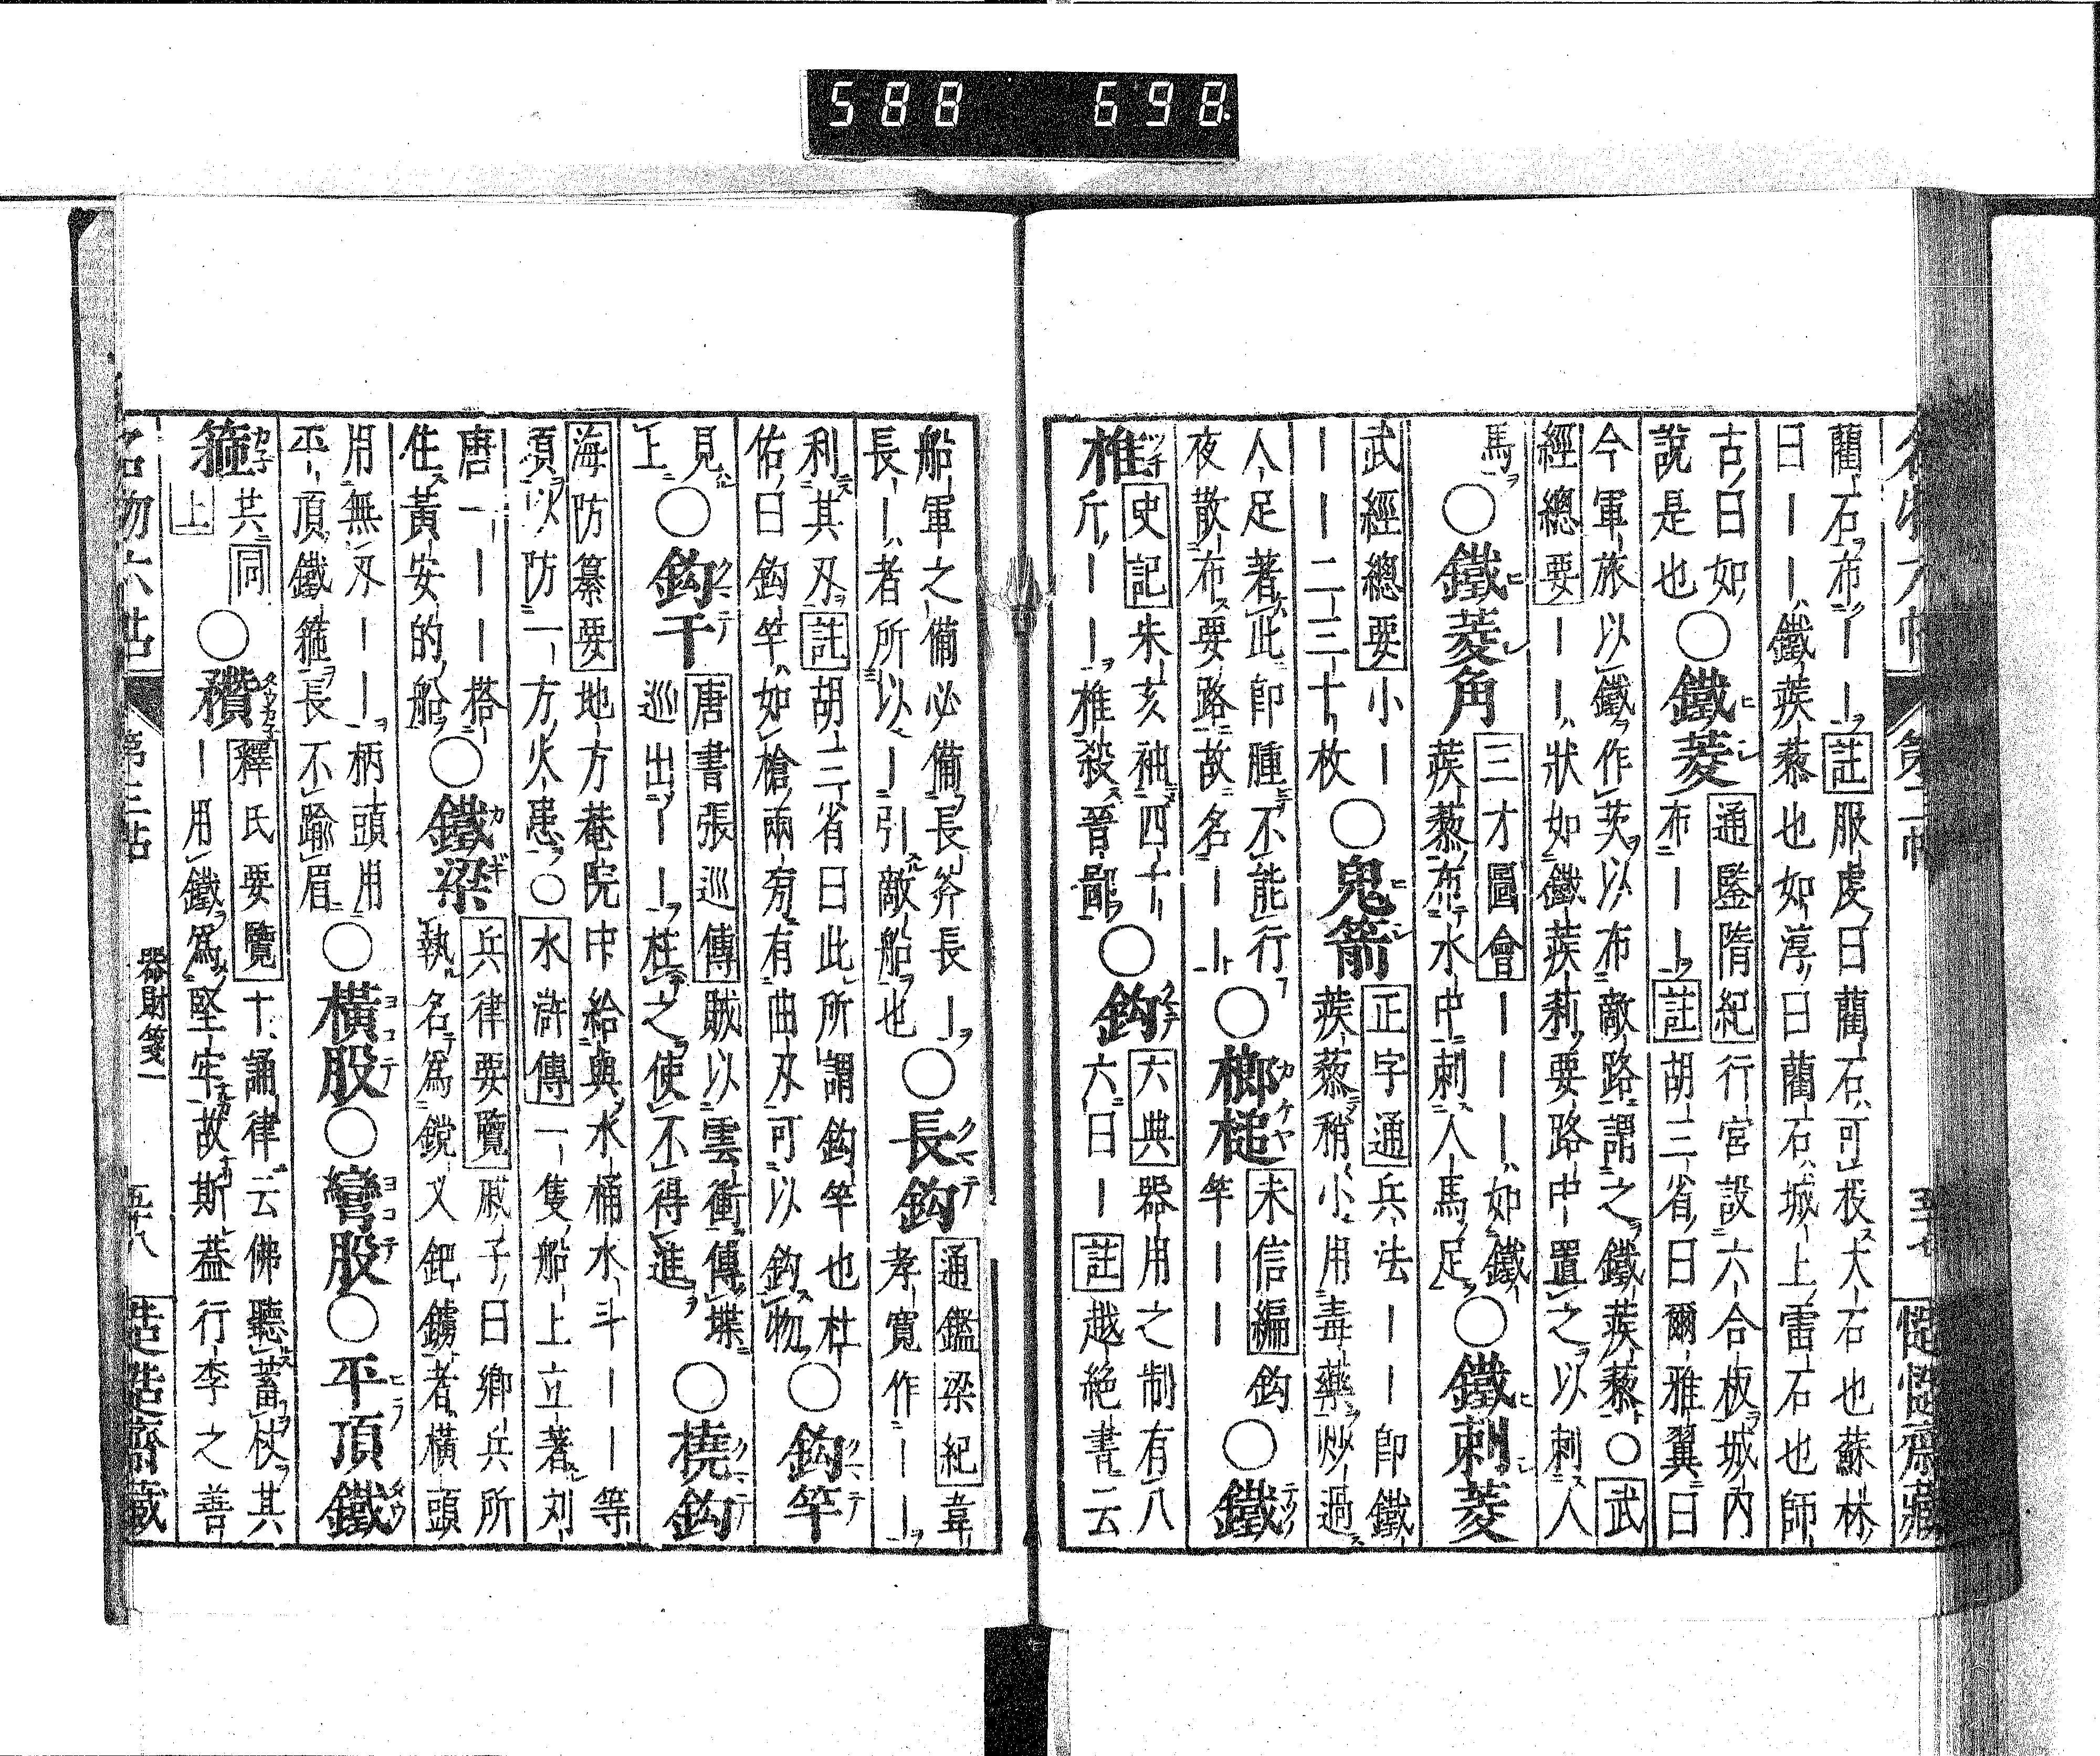 名物六帖 第三帖 五十七 齋藏
藺石布｜｜註服虔曰藺石可投大石也蘇林
曰｜｜鐵蒺蔾也如淳曰藺石城上雷石也師
古曰如
說是也
○鐵菱
通鑒隋紀行宮設六合板城內
布｜｜註胡三省曰爾雅翼曰
今軍旅以鐵作茨以布敵路謂之鐵蒺藜○武
經總要｜｜狀如鐵蒺莉要路中置之以刺人
馬○鐵菱角
三才圖會｜｜｜如鐵
蒺藜布水中刺人馬足
○鐵刺菱
武經總要小｜
｜｜二三十枚
○鬼箭
正字通兵法｜｜即鐵
蒺藜稍小用毒藥炒過
人足著此即腫不能行
夜散布要路故名｜｜
○榔槌
未信編鈎
竿｜｜
○鐵
椎
史記朱亥袖四十
斤｜｜椎殺晉鄙
○鈎
大典器用之制有八
六曰｜註越絕書云
船軍之備必備長斧長｜
長｜者所以｜引敵船也
○長鈎
通鑑梁紀韋
孝寬作｜｜
利其刃註胡三省曰此所謂鈎竿也杜
佑曰鈎竿如槍兩旁有曲刃可以鈎物
○鈎竿
見
上
○鈎干
唐書張巡傳賊以雲衝傅堞
巡出｜｜柱之使不得進
○撓鈎
海防纂要地方菴院中給與水桶水斗｜｜等
須以防一方火患○水滸傳一隻船上立著刘
唐一｜｜搭
住黃安的船
○鐵梁
兵律要覽戚子曰鄉兵所
執名為鎲叉鈀鐪者橫頭
用無刃｜｜柄頭用
平頂鐵箍長不踰眉
○橫股○彎股○平頂鐵
箍
共同
上
○穳
釋氏要覽十誦律云佛聽蓄杖其
｜用鐵為堅牢故斯蓋行李之善
名物六帖 第三帖 器財箋一 五十八 齋藏
588 698